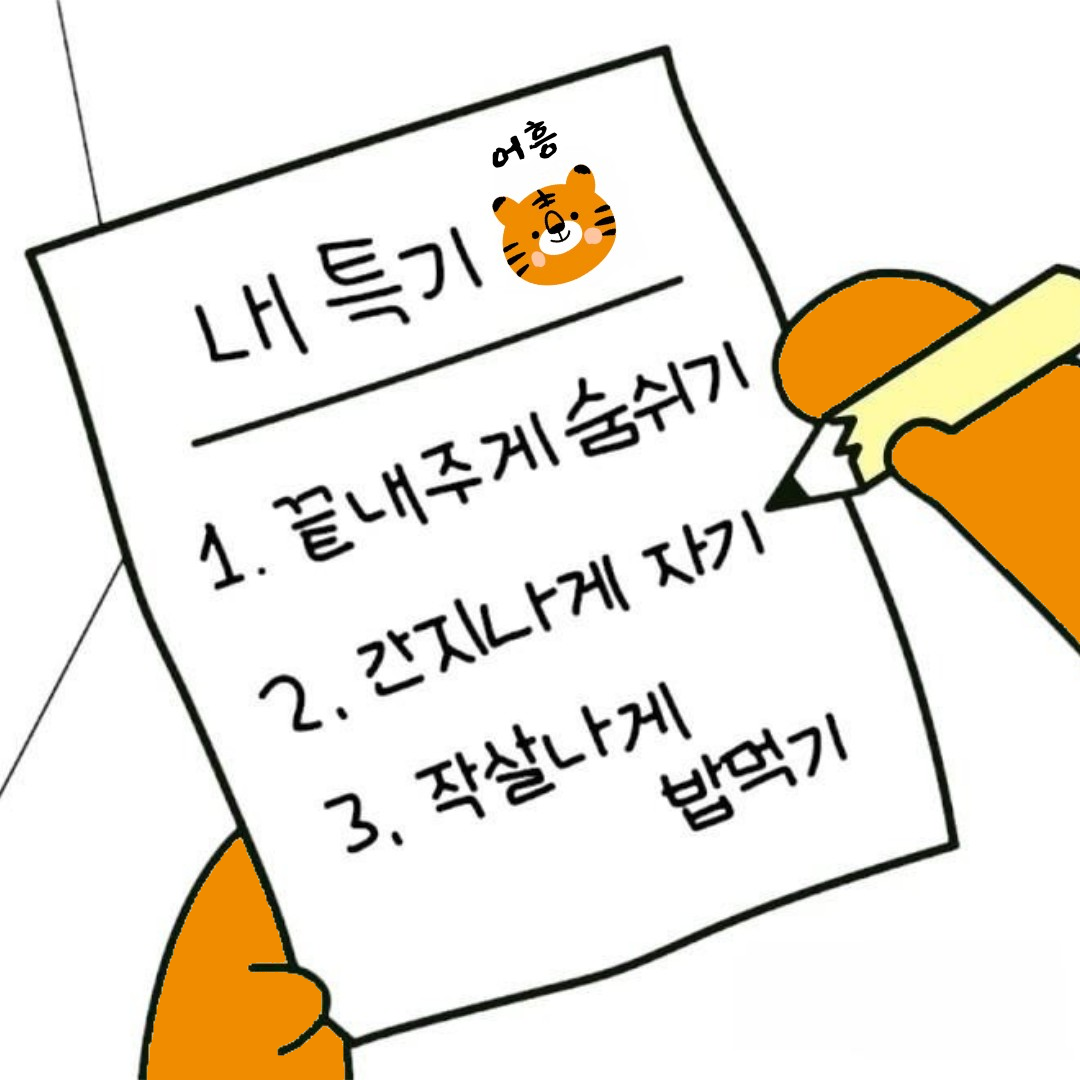 어흥
내 특기
1. 끝내주게 숨쉬기
2. 간지나게 자기
3. 작살나게
밥먹기